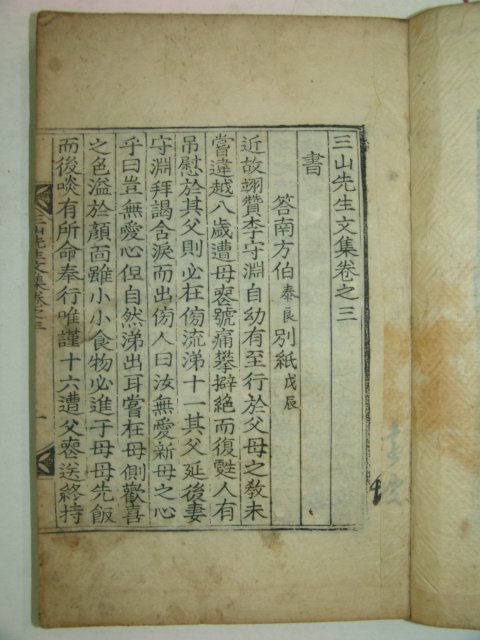 三山先生文集卷之三
書
答南方伯 泰良 別紙 戊辰
近故翊贊李守淵自幼有至行於父母之敎未
嘗違越八歲遭母喪號痛攀擗絶而復甦人有
吊慰於其父則必在傍流涕十一其父延後妻
守淵拜謁含淚而出傍人曰汝無愛新母之心
乎曰豈無愛心但自然涕出耳嘗在母側歡喜
之色溢於顔面雖小小食物必進于母母先飯
而後啖有所命奉行唯謹十六遭父喪送終持
三山先生文集卷之三
一